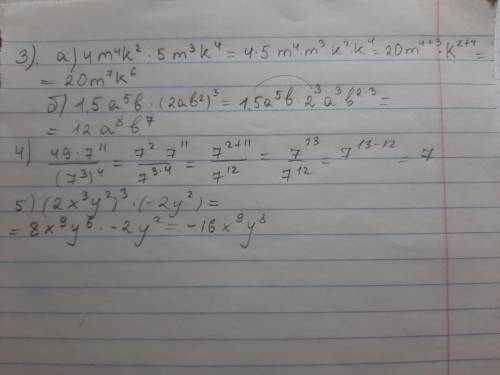 3). а) 4m⁴k² · 5m³k⁴ = 4·5 m⁴·m³·k²·k⁴ = 20m⁴⁺³·k²⁺⁴ =
= 20m⁷k⁶
б) 1,5a⁵b · (2ab²)³ = 1,5a⁵b · 2³a³b²·³ =
= 12a⁸b⁷
4) 49·7¹¹/(7³)⁴ = 7² 7¹¹/7³·⁴ = 7²⁺¹¹/7¹² = 7¹³/7¹² = 7¹³⁻¹² = 7
5) (2x³y²)³ · (-2y²) =
= 8x⁹y⁶ · -2y² = -16x⁹y⁸